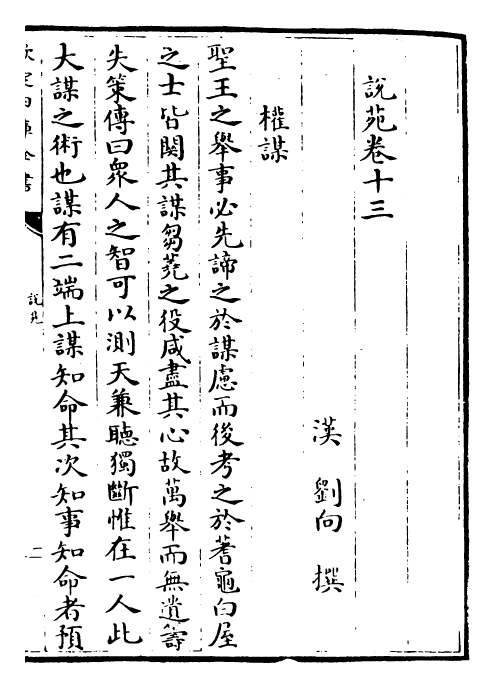 說苑卷十三
漢 劉向 撰
權謀
聖王之舉事必先諦之於謀慮而後考之於蓍龜白屋
之士皆關其謀芻蕘之役咸盡其心故萬舉而無遺籌
失策傳曰衆人之智可以測天兼聽獨斷惟在一人此
大謀之術也謀有二端上謀知命其次知事知命者預
欽定四庫全書
說苑